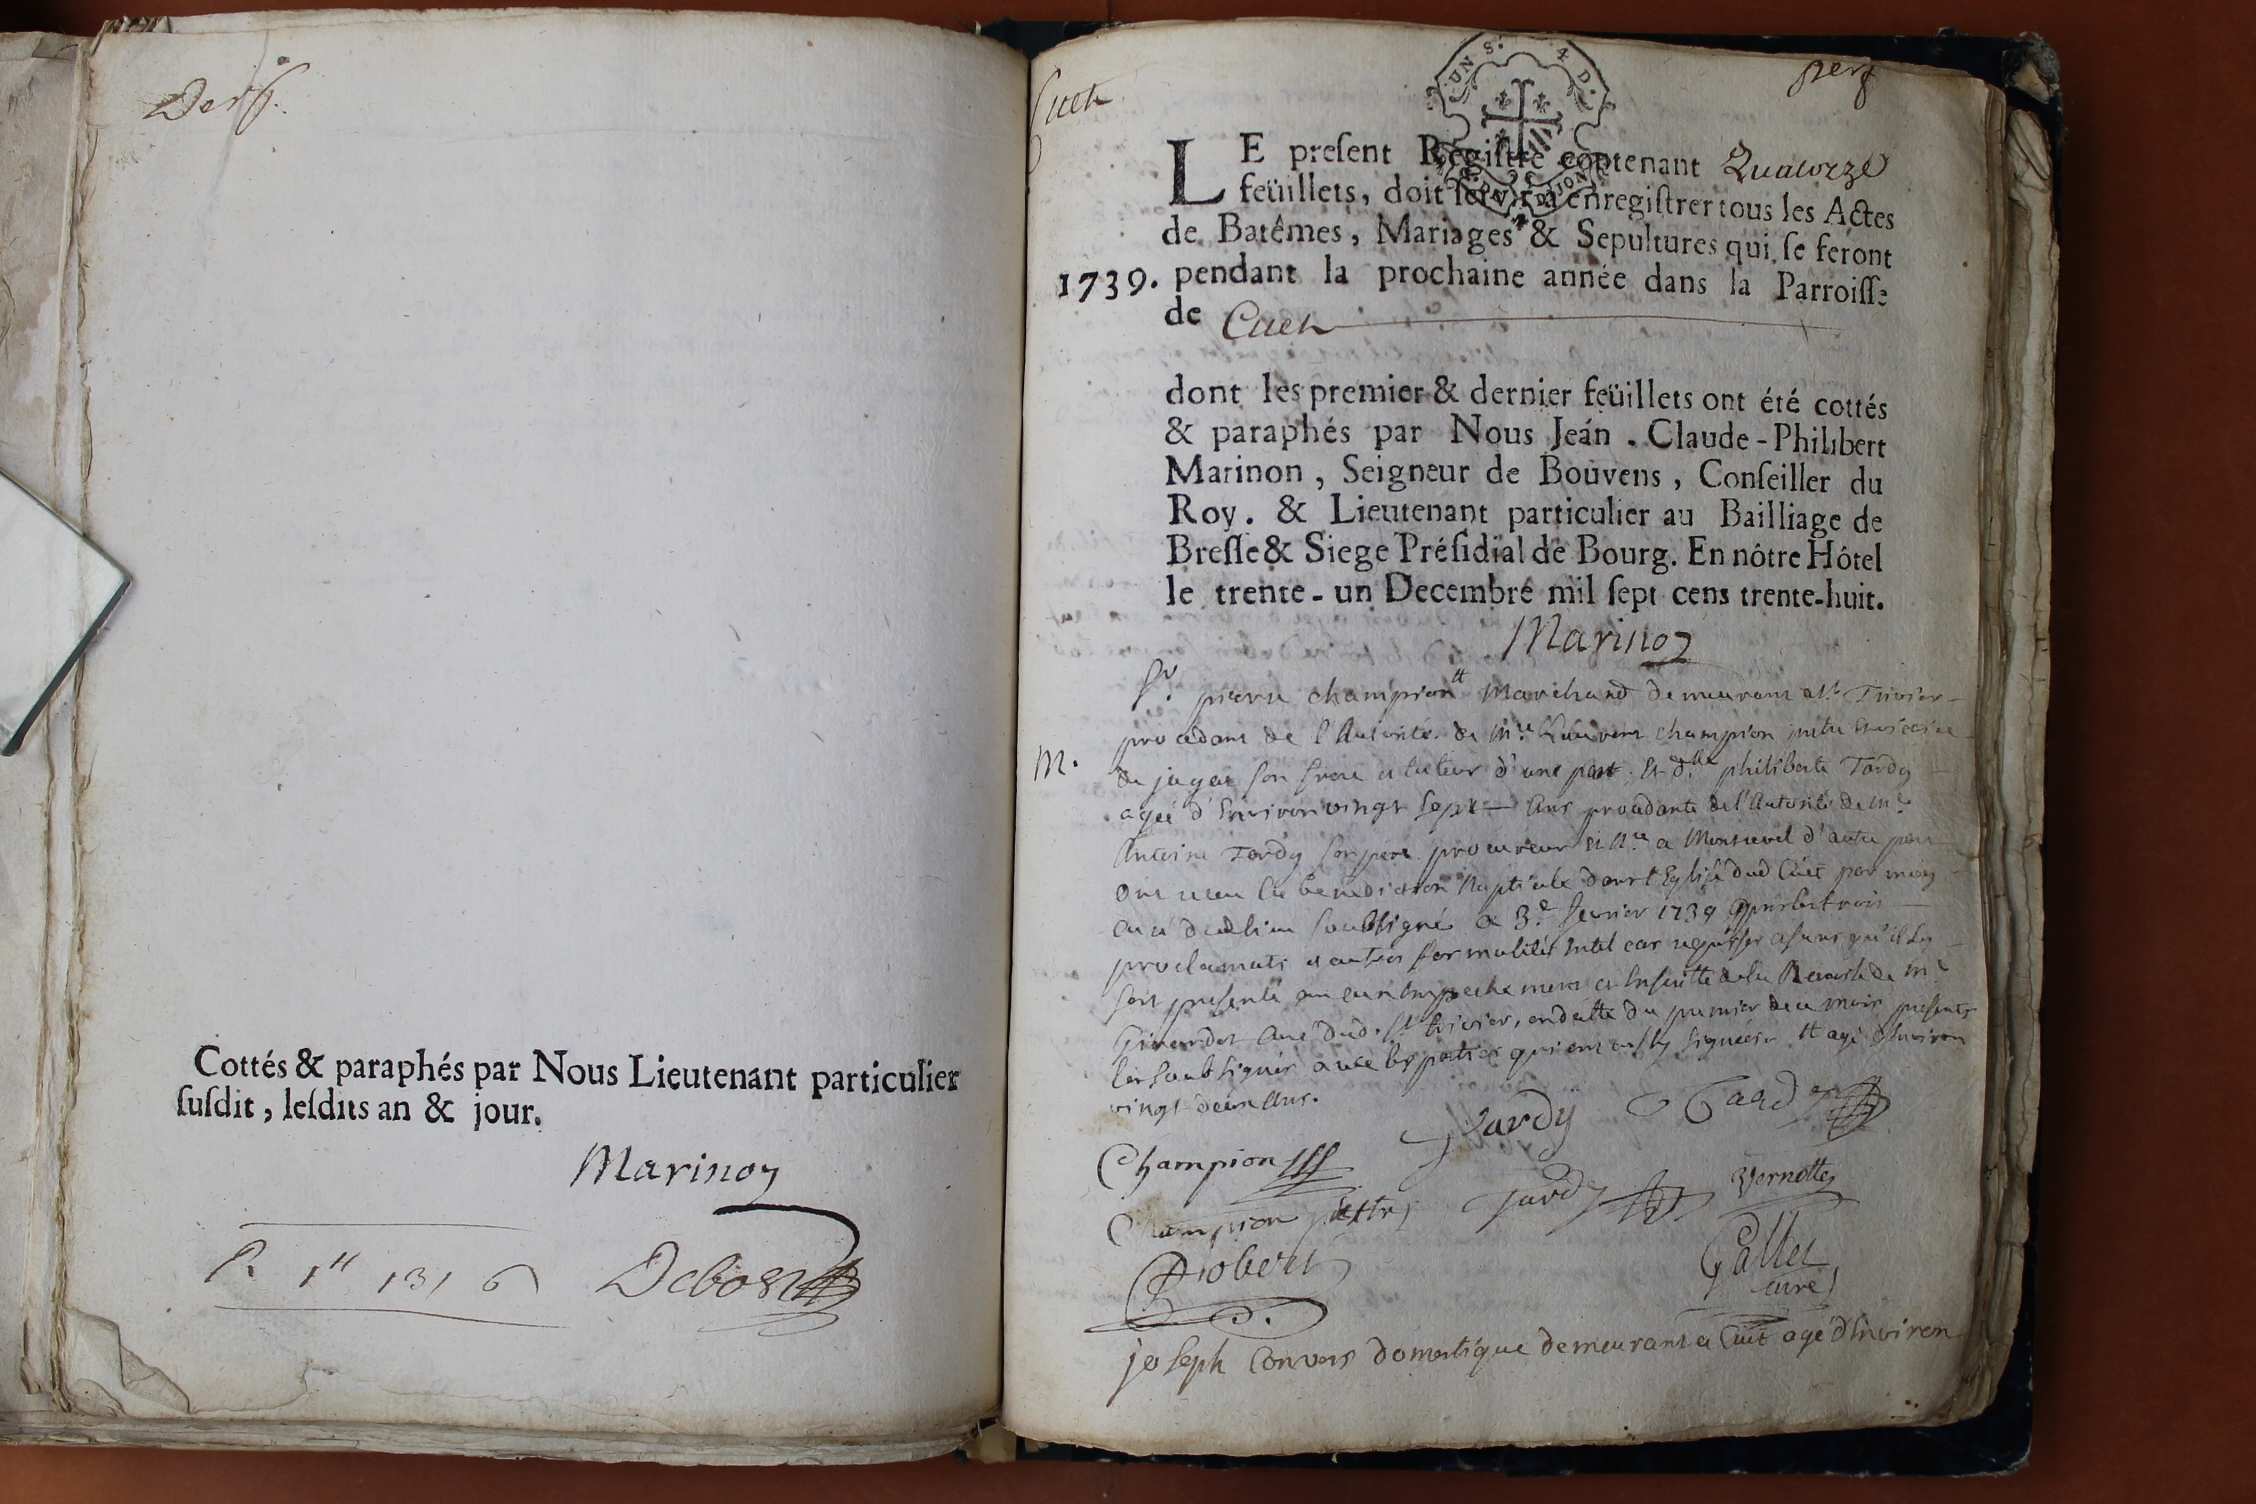 Cottés & paraphés par Nous Lieutenant particulier
ſuſdit, leſdits an & jour.
Marinon
Cuet
UN S. 4 D.
LE preſent Regiſtre contenant Quatorze
feüillets, doit ſervir à enregiſtrer tous les Actes
de Batêmes, Mariages & Sepultures qui ſe feront
1739. pendant la prochaine année dans la Parroiſſe
de Cuet
dont les premier & dernier feüillets ont été cottés
& paraphés par Nous Jean-Claude-Philibert
Marinon, Seigneur de Bouvens, Conſeiller du
Roy. & Lieutenant particulier au Bailliage de
Breſſe & Siege Préſidial de Bourg. En nôtre Hôtel
le trente-un Decembre mil ſept cens trente-huit.
Marinon
Sr. pierre champion tt Marchand demeurant a St. Trivier
procedant de l'Autorité de Mre champion
M.
son frere et tuteur d'une part. Et dlle philiberte Tardy
agée d'Environ vingt sept ans procedante de l'Autorité de mr
Antoine Tardy son pere procureur et Nre a Montrevel d'autre part
ont receu la benediction Nuptiale dans l'Eglise dud Cuet par moy
curé dud lieu soubsigné ce 3e fevrier 1739 apres les trois
proclamats et autres formalités
soit presenté aucun empechement et ensuitte de la Remise de mr
curé dud. St trivier, en datte du premier de ce mois presents
les soubsignés avec les parties qui ont aussy signées. tt agé d'Environ
vingt deux ans.
Champion
Tardy
Champion
Tardy
Vernette
Robert
Gallet
curé
joseph Convers domestique demeurant a Cuet agé d'Environ